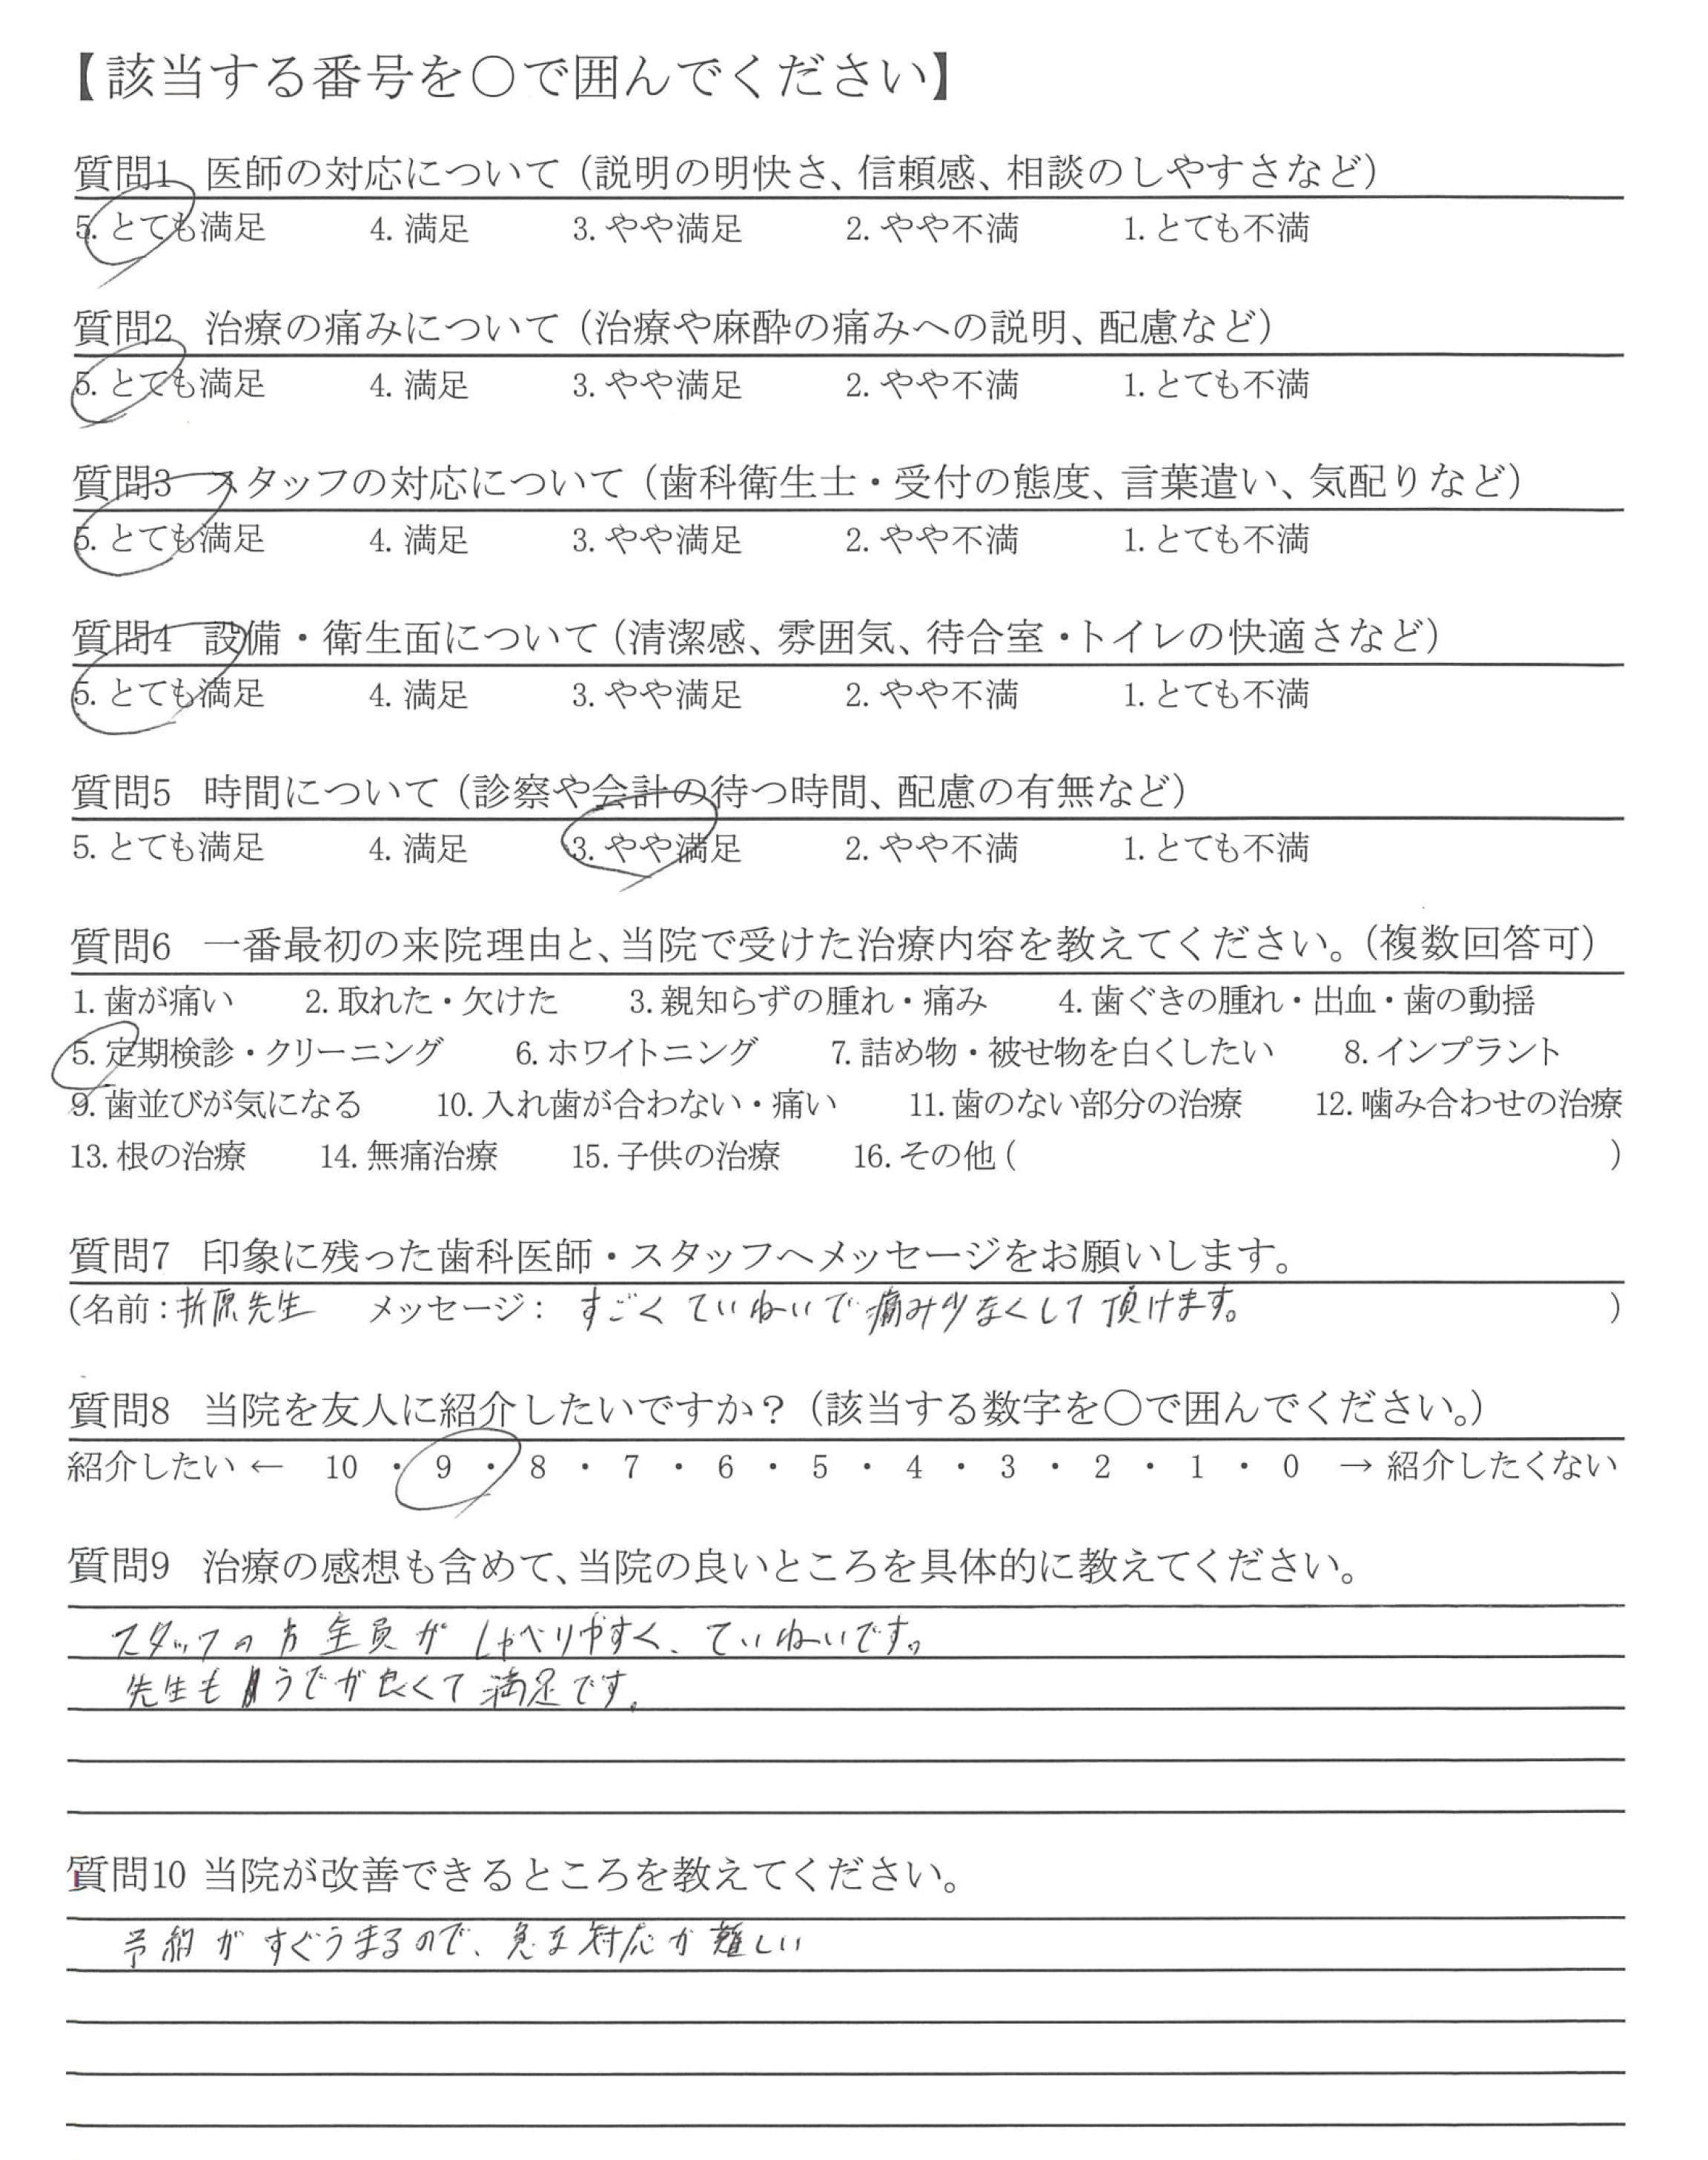 【該当する番号を〇で囲んでください】
質問1 医師の対応について（説明の明快さ、信頼感、相談のしやすさなど）
5. とても満足 4. 満足 3. やや満足 2. やや不満 1. とても不満
質問2 治療の痛みについて（治療や麻酔の痛みへの説明、配慮など）
5. とても満足 4. 満足 3. やや満足 2. やや不満 1. とても不満
質問3 スタッフの対応について（歯科衛生士・受付の態度、言葉遣い、気配りなど）
5. とても満足 4. 満足 3. やや満足 2. やや不満 1. とても不満
質問4 設備・衛生面について（清潔感、雰囲気、待合室・トイレの快適さなど）
5. とても満足 4. 満足 3. やや満足 2. やや不満 1. とても不満
質問5 時間について（診察や会計の待つ時間、配慮の有無など）
5. とても満足 4. 満足 3. やや満足 2. やや不満 1. とても不満
質問6 一番最初の来院理由と、当院で受けた治療内容を教えてください。（複数回答可）
1. 歯が痛い 2. 取れた・欠けた 3. 親知らずの腫れ・痛み 4. 歯ぐきの腫れ・出血・歯の動揺
5. 定期検診・クリーニング 6. ホワイトニング 7. 詰め物・被せ物を白くしたい 8. インプラント
9. 歯並びが気になる 10. 入れ歯が合わない・痛い 11. 歯のない部分の治療 12. 噛み合わせの治療
13. 根の治療 14. 無痛治療 15. 子供の治療 16. その他（ ）
質問7 印象に残った歯科医師・スタッフへメッセージをお願いします。
（名前：折原先生 メッセージ： すごくていねいで痛み少なくして頂けます。 ）
質問8 当院を友人に紹介したいですか？（該当する数字を〇で囲んでください。）
紹介したい ← 10 ・ 9 ・ 8 ・ 7 ・ 6 ・ 5 ・ 4 ・ 3 ・ 2 ・ 1 ・ 0 → 紹介したくない
質問9 治療の感想も含めて、当院の良いところを具体的に教えてください。
スタッフの方全員がしゃべりやすく、ていねいです。
先生もうでが良くて満足です。
質問10 当院が改善できるところを教えてください。
予約がすぐうまるので、急な対応が難しい